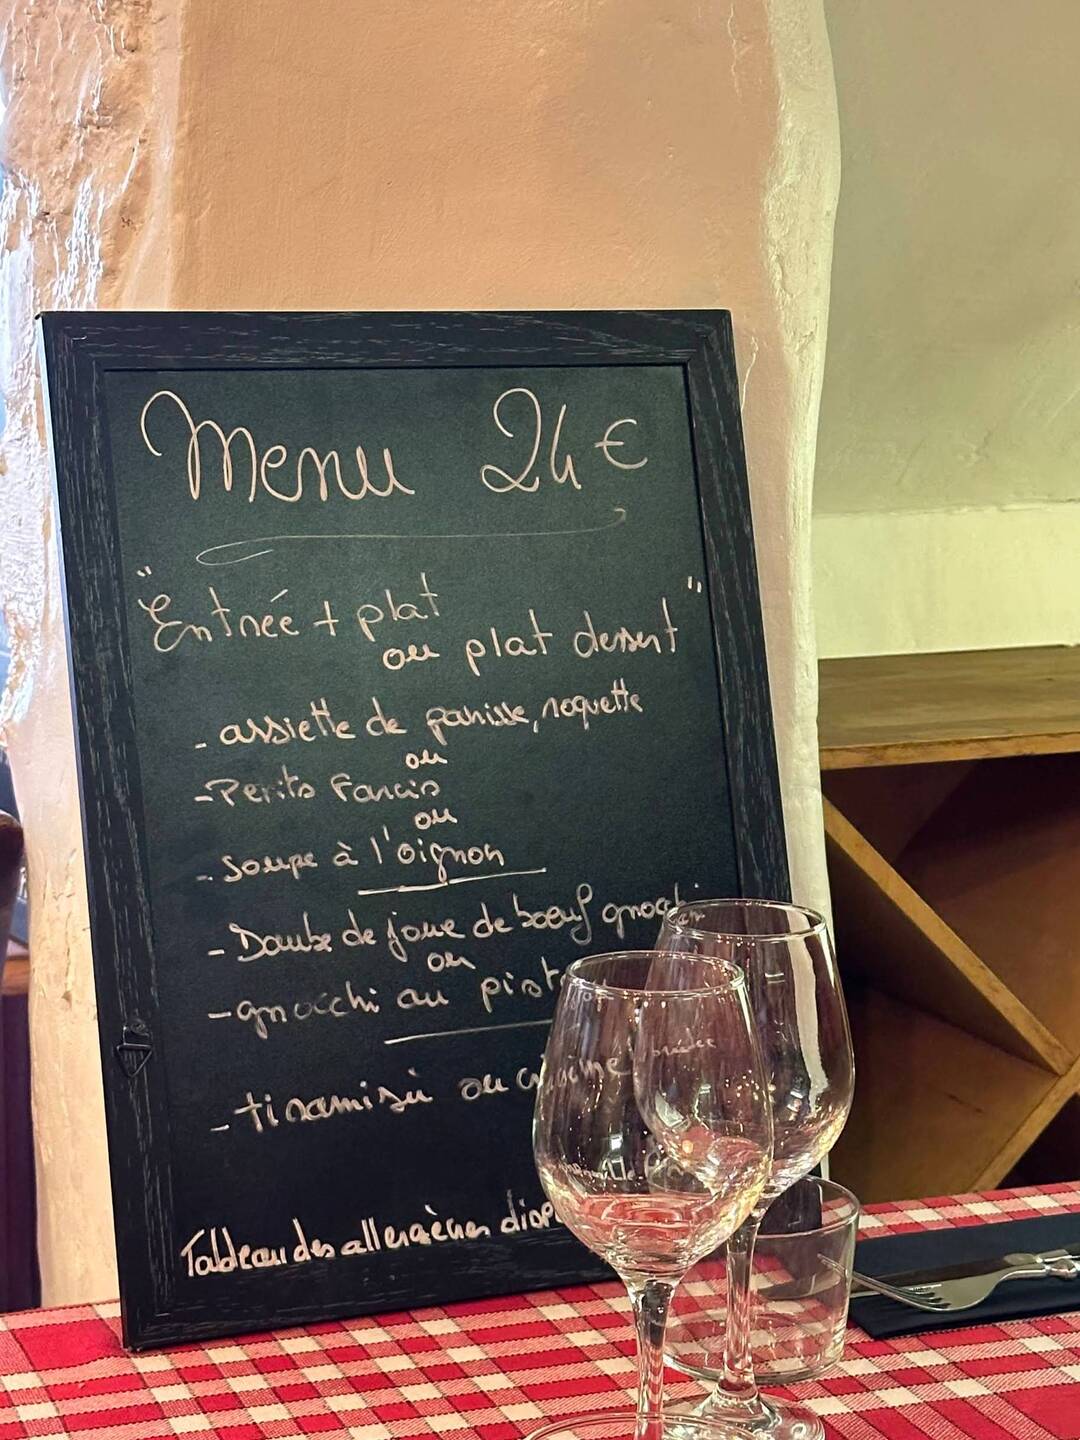 Menu 24 €
"Entrée + plat
ou plat dessert"
- assiette de panisse, roquette
ou
- Petits Farcis
ou
- soupe à l'oignon
- Daube de joue de boeuf gnocchi
ou
- gnocchi au
- tiramisù ou
Tableau des allergènes